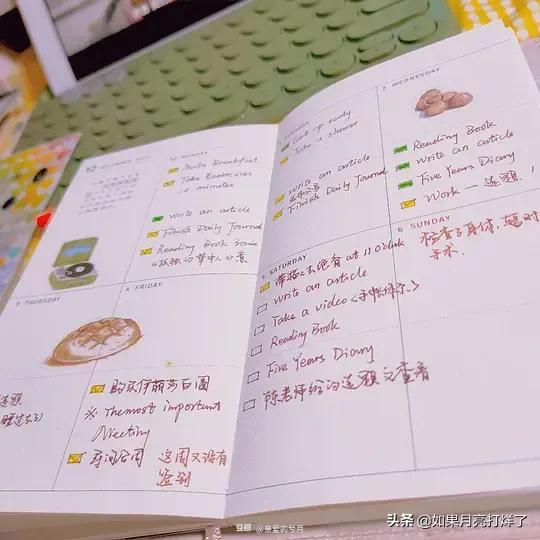 MONDAY
Make Breakfast
Take Exercises
minutes
Write an article
Finish Daily Journal
Reading Book
TUESDAY
Get up early
Take a shower
Write an article
Finish Daily Journal
2 WEDNESDAY
Reading Book
Write an article
Five Years Diary
Work 一 选题
3 THURSDAY
选题
4 FRIDAY
购买伊丽莎白圈
※ The most important
Meeting
合同 这周又没有
签到
5 SATURDAY
去绝育 at 11 o'clock
Write an article
Take a video
Reading Book
Five Years Diary
陈老师给的选题
6 SUNDAY
检查了身体
手术.
豆瓣 @亲爱的兮月
头条 @如果月亮打烊了